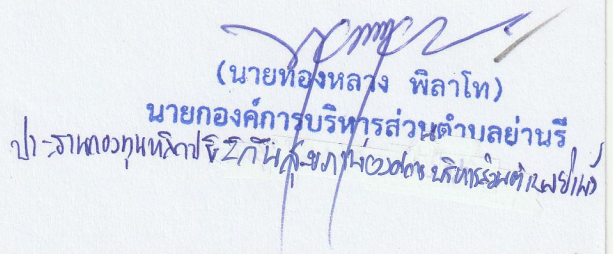 (นายทองหลวง พิลาโท)
นายกองค์การบริหารส่วนตำบลย่านรี
ประธานกองทุนหลักประกันสุขภาพองค์การบริหารส่วนตำบลย่านรี